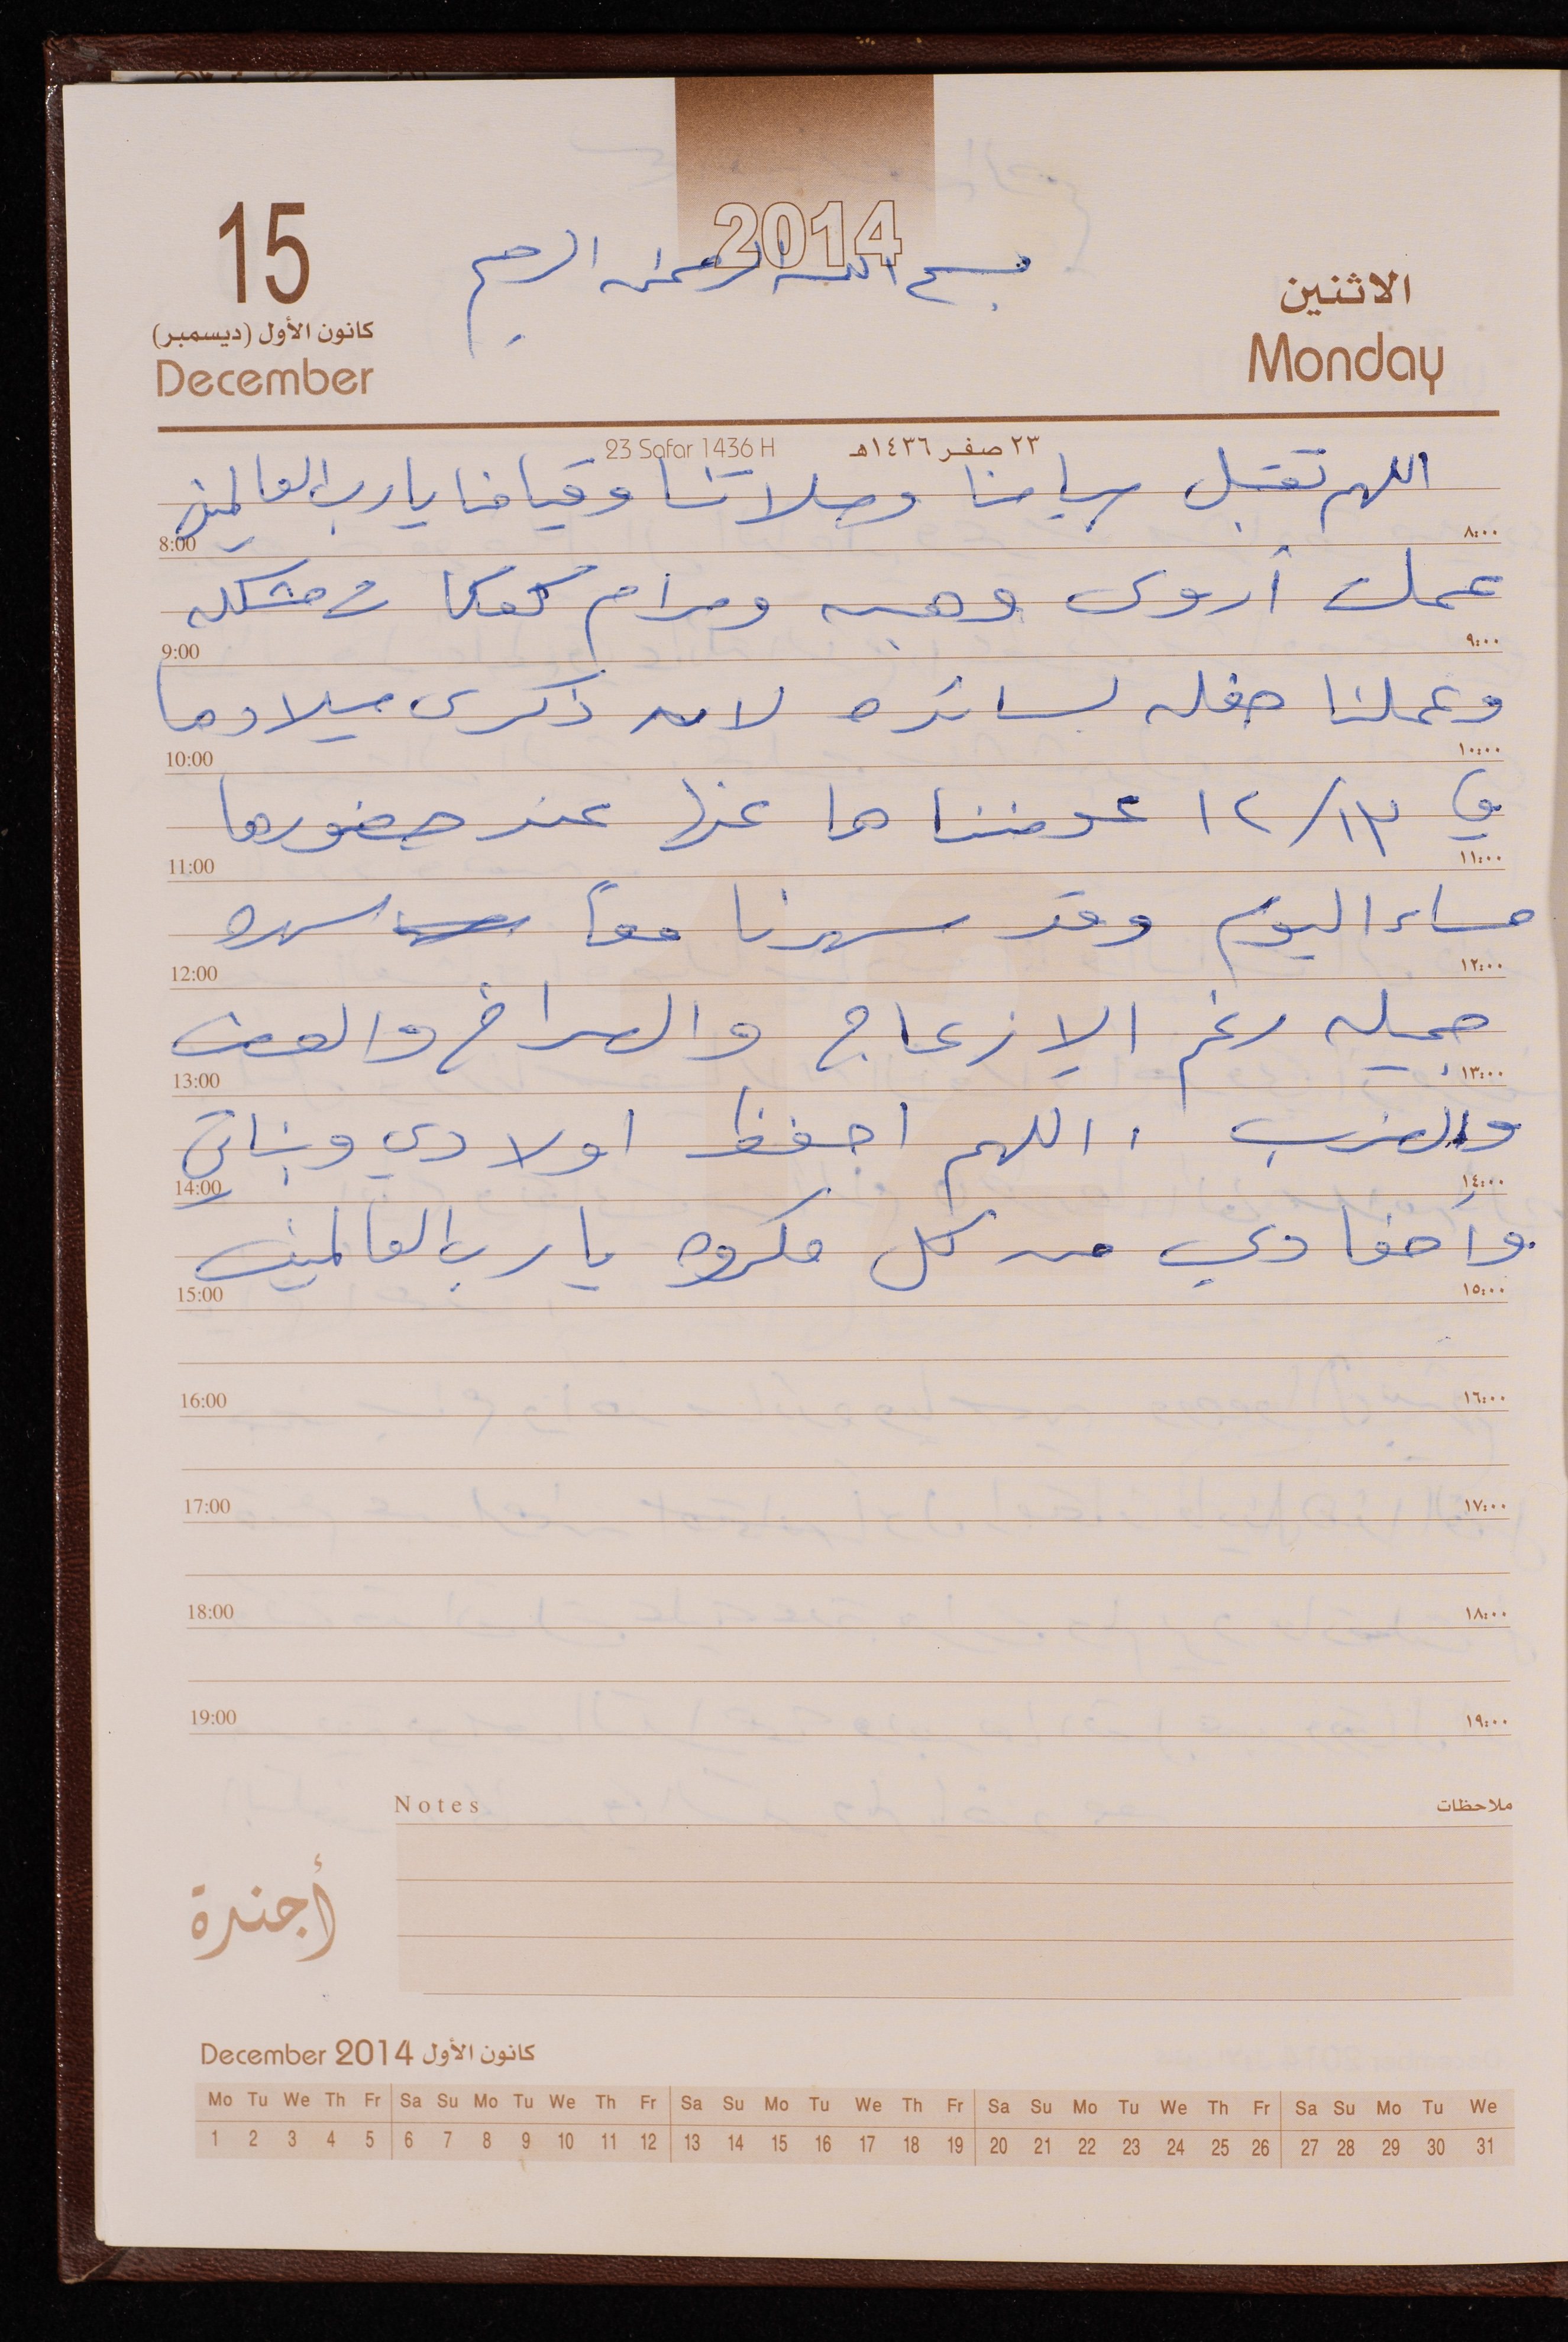 2014
15
كانون الأول (ديسمبر)
December
بسم الله الرحمن الرحيم
الاثنين
Monday
23 Safar 1436 H ٢٣ صفر ١٤٣٦هـ
اللهم تقبل صيامنا وصلاتنا وقيامنا يارب العالمين
8:00 ٨:٠٠
عملت أروى وهبه ومرام كعكا
9:00 ٩:٠٠
وعملنا حفله لسائده لانه ذكرى ميلادها
10:00 ١٠:٠٠
في ١٢/١٣ عوضناها عنها عند حضورها
11:00 ١١:٠٠
مساء اليوم وقد سهرنا معاً سهره
12:00 ١٢:٠٠
جميله رغم الإزعاج والصراخ والعث
13:00 ١٣:٠٠
والضرب ، اللهم احفظ اولادي وبناتي
14:00 ١٤:٠٠
وأحفادي من كل مكروه يارب العالمين
15:00 ١٥:٠٠
16:00 ١٦:٠٠
17:00 ١٧:٠٠
18:00 ١٨:٠٠
19:00 ١٩:٠٠
Notes ملاحظات
أجندة
December 2014 كانون الأول
Mo Tu We Th Fr Sa Su Mo Tu We Th Fr Sa Su Mo Tu We Th Fr Sa Su Mo Tu We Th Fr Sa Su Mo Tu We
1 2 3 4 5 6 7 8 9 10 11 12 13 14 15 16 17 18 19 20 21 22 23 24 25 26 27 28 29 30 31